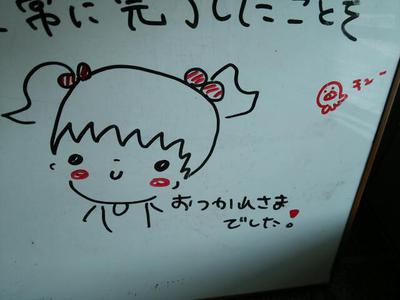 常に完了したことを
おつかれさま
でした!
チュー